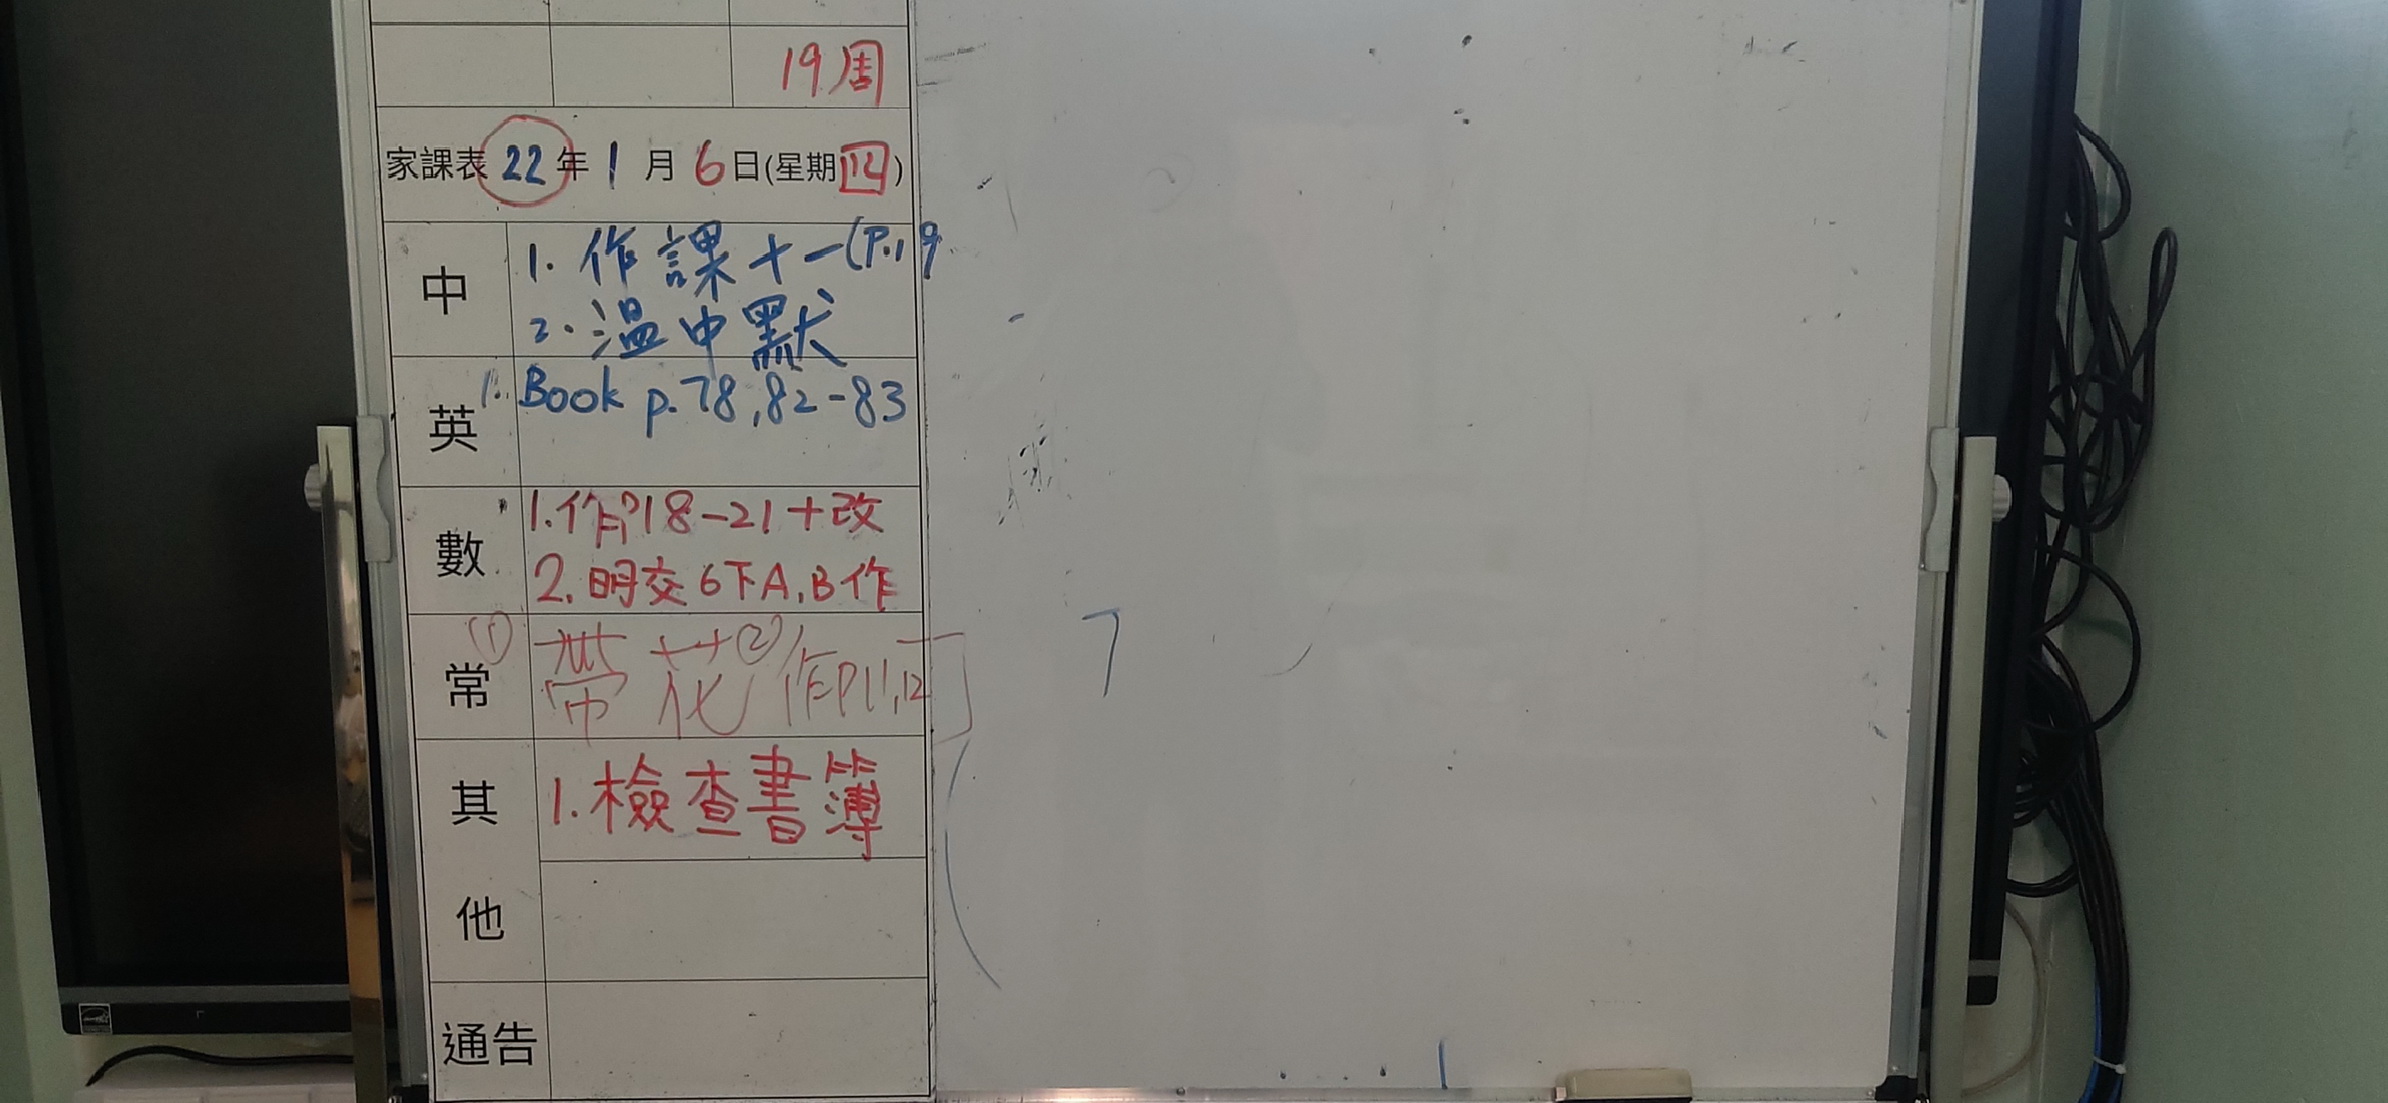 19周
家課表 22 年 1 月 6 日(星期四)
中
1. 作課十一(P.19
2. 溫中默
英
1. Book p.78,82-83
數
1.作P18-21+改
2.明交6下A,B作
常
① 帶花 ② 作P11,12
其他
1.檢查書簿
通告